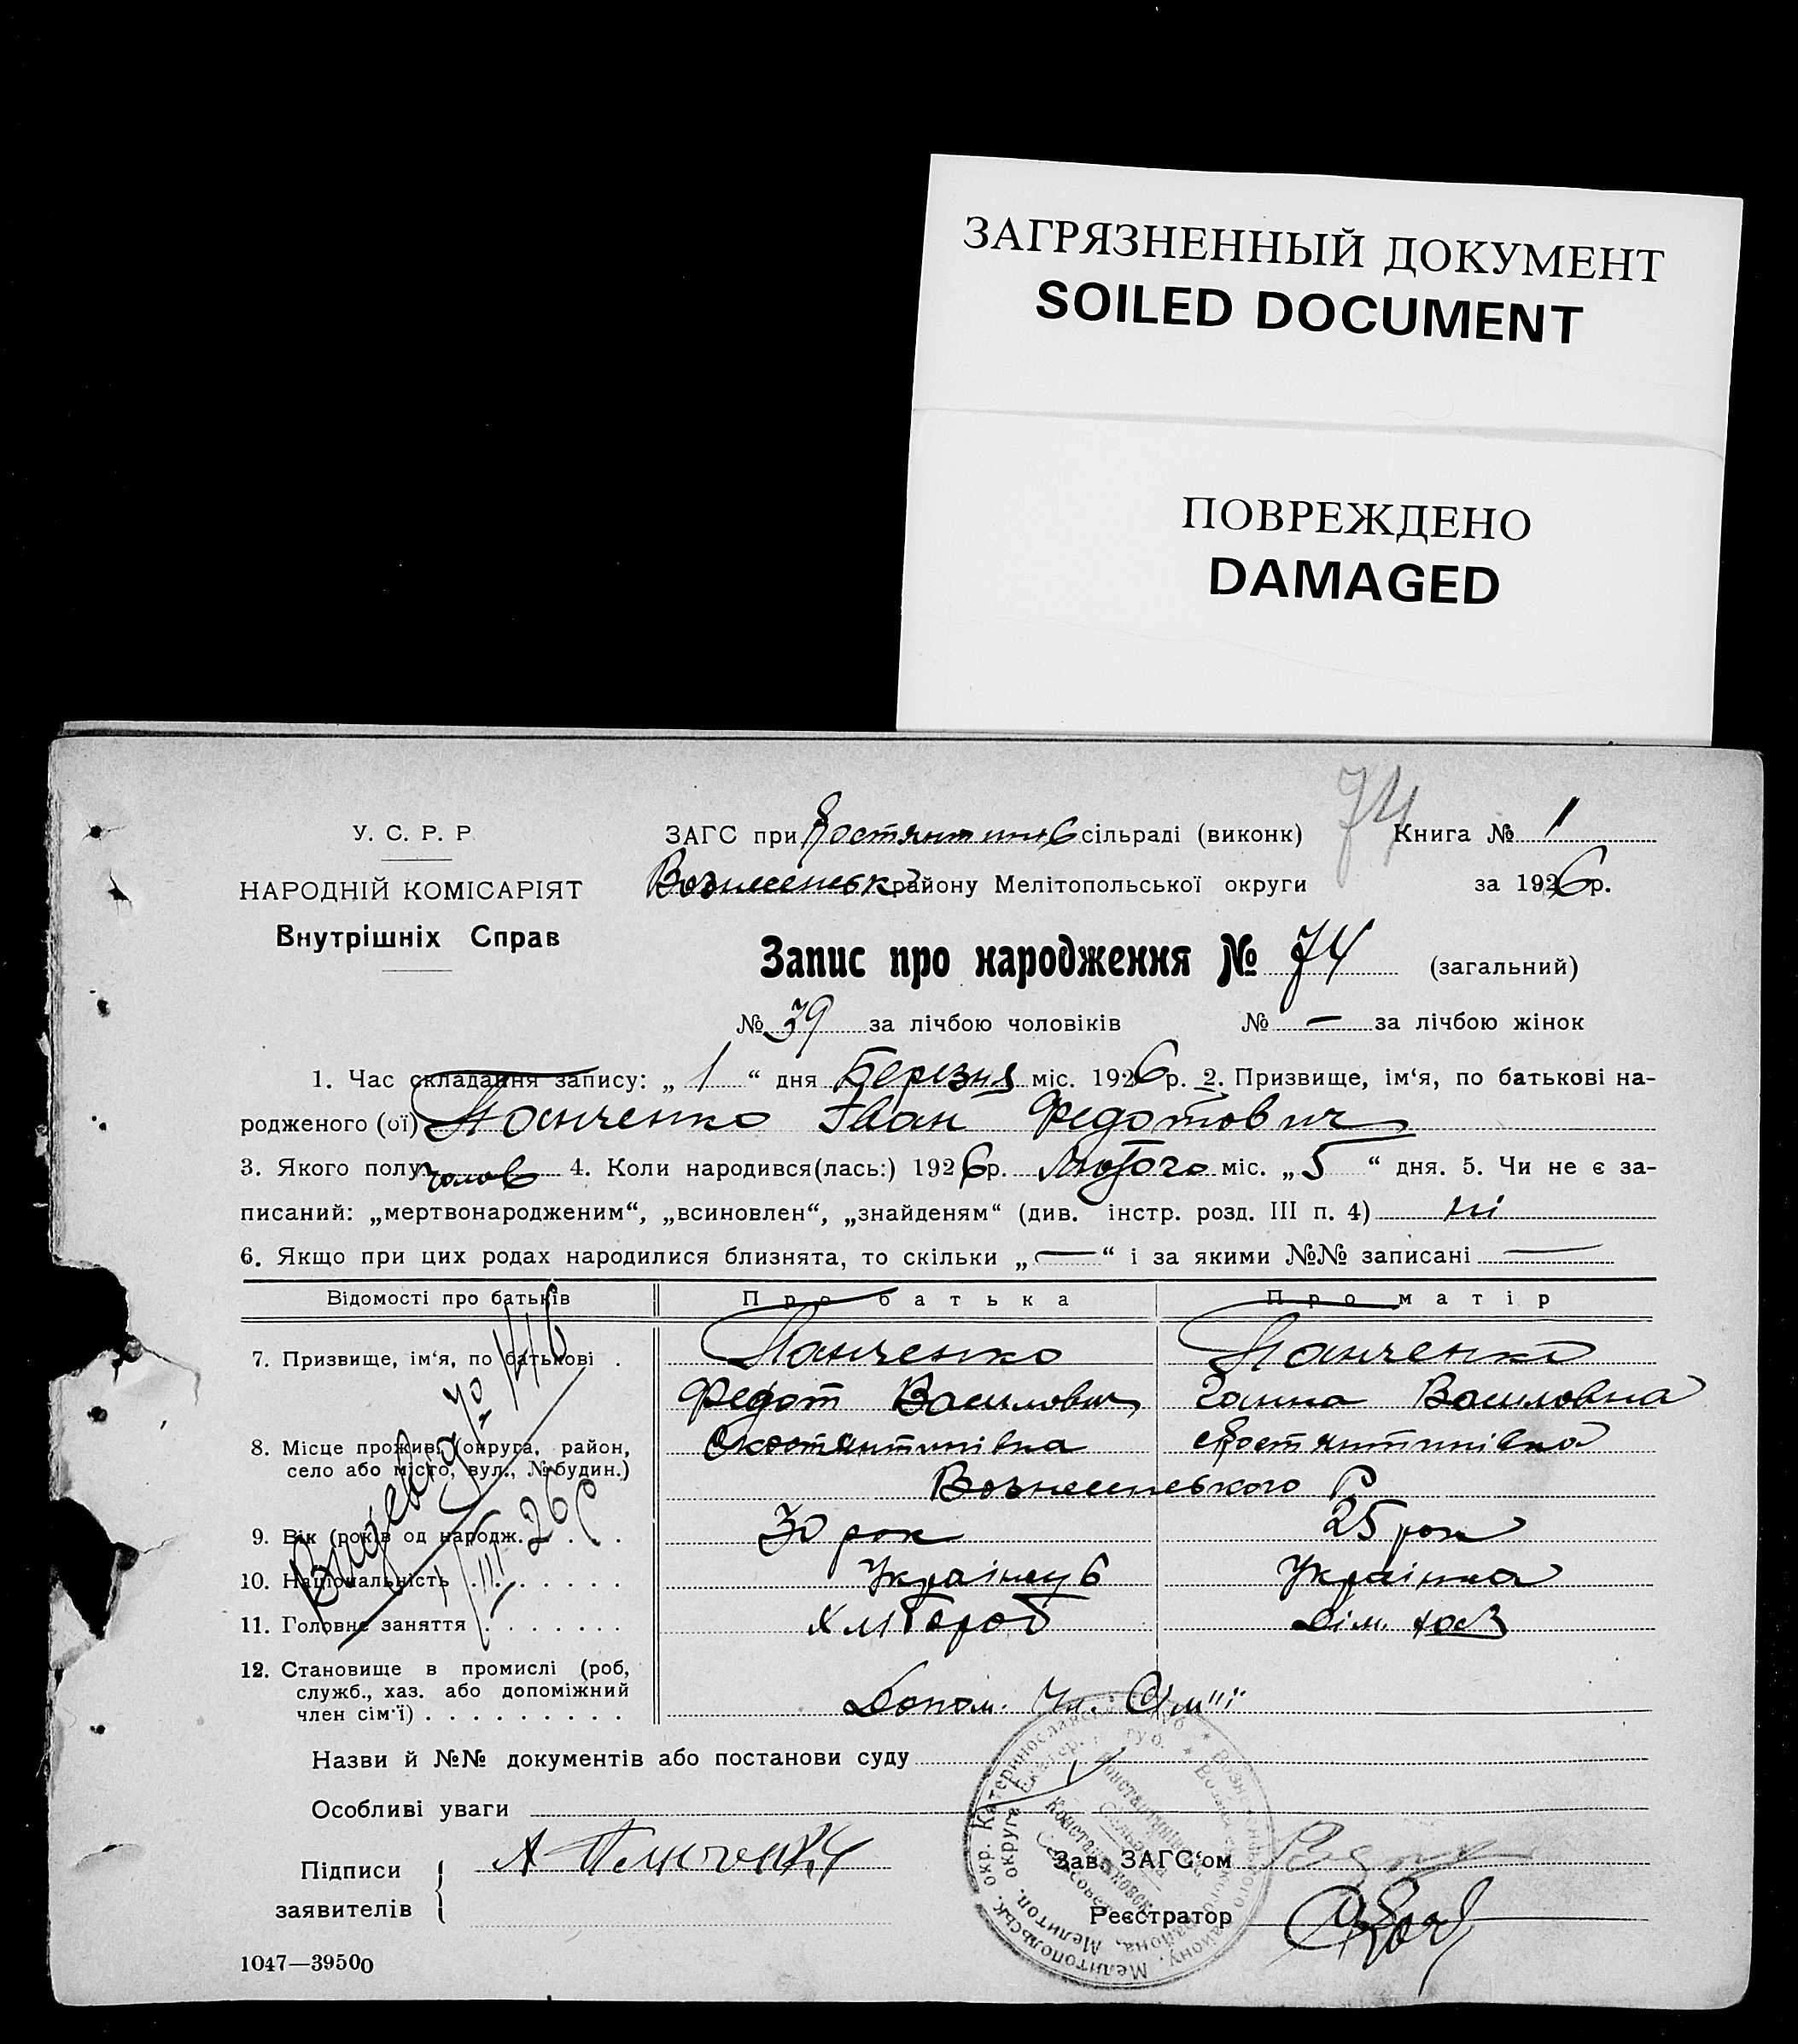 ЗАГРЯЗНЕННЫЙ ДОКУМЕНТ
SOILED DOCUMENT
ПОВРЕЖДЕНО
DAMAGED
74
У. С. Р. Р
НАРОДНІЙ КОМІСАРІЯТ
Внутрішніх Справ
ЗАГС при Костянтинів сільраді (виконк) Книга № 1
Вознесенськ району Мелітопольської округи за 1926 р.
Запис про народження № 74 (загальний)
№ 39 за лічбою чоловіків № — за лічбою жінок
1. Час складання запису: „ 1 “ дня Березня міс. 1926 р. 2. Призвище, ім‘я, по батькові на-
родженого (ої) Панченко Іван Федотович
3. Якого полу: чолов 4. Коли народився(лась:) 1926 р. Лютого міс. „ 5 “ дня. 5. Чи не є за-
писаний: „мертвонародженим“, „всиновлен“, „знайденям“ (див. інстр. розд. III п. 4) ні
6. Якщо при цих родах народилися близнята, то скільки „ — “ і за якими №№ записані —
Відомості про батьків Про батька Про матір
7. Призвище, ім‘я, по батькові . Панченко Панченко
Федот Василович Ганна Василовна
8. Місце прожив. (округа, район, Костянтинівка Костянтинівка
село або місто, вул., № будин.)
Вознесенського Р
9. Вік (років од народж. . . . 30 рок 25 рок
10. Національність . . . . . . . Українець Українка
11. Головне заняття . . . . . . . Хлібороб Дім. хоз
12. Становище в промислі (роб,
служб., хаз. або допоміжний
член сім‘ї) . . . . . . . . . Допом. Чл. Сім"ї
Назви й №№ документів або постанови суду
Особливі уваги
Підписи
заявителів
Зав. ЗАГС‘ом
Реєстратор
1047—39500